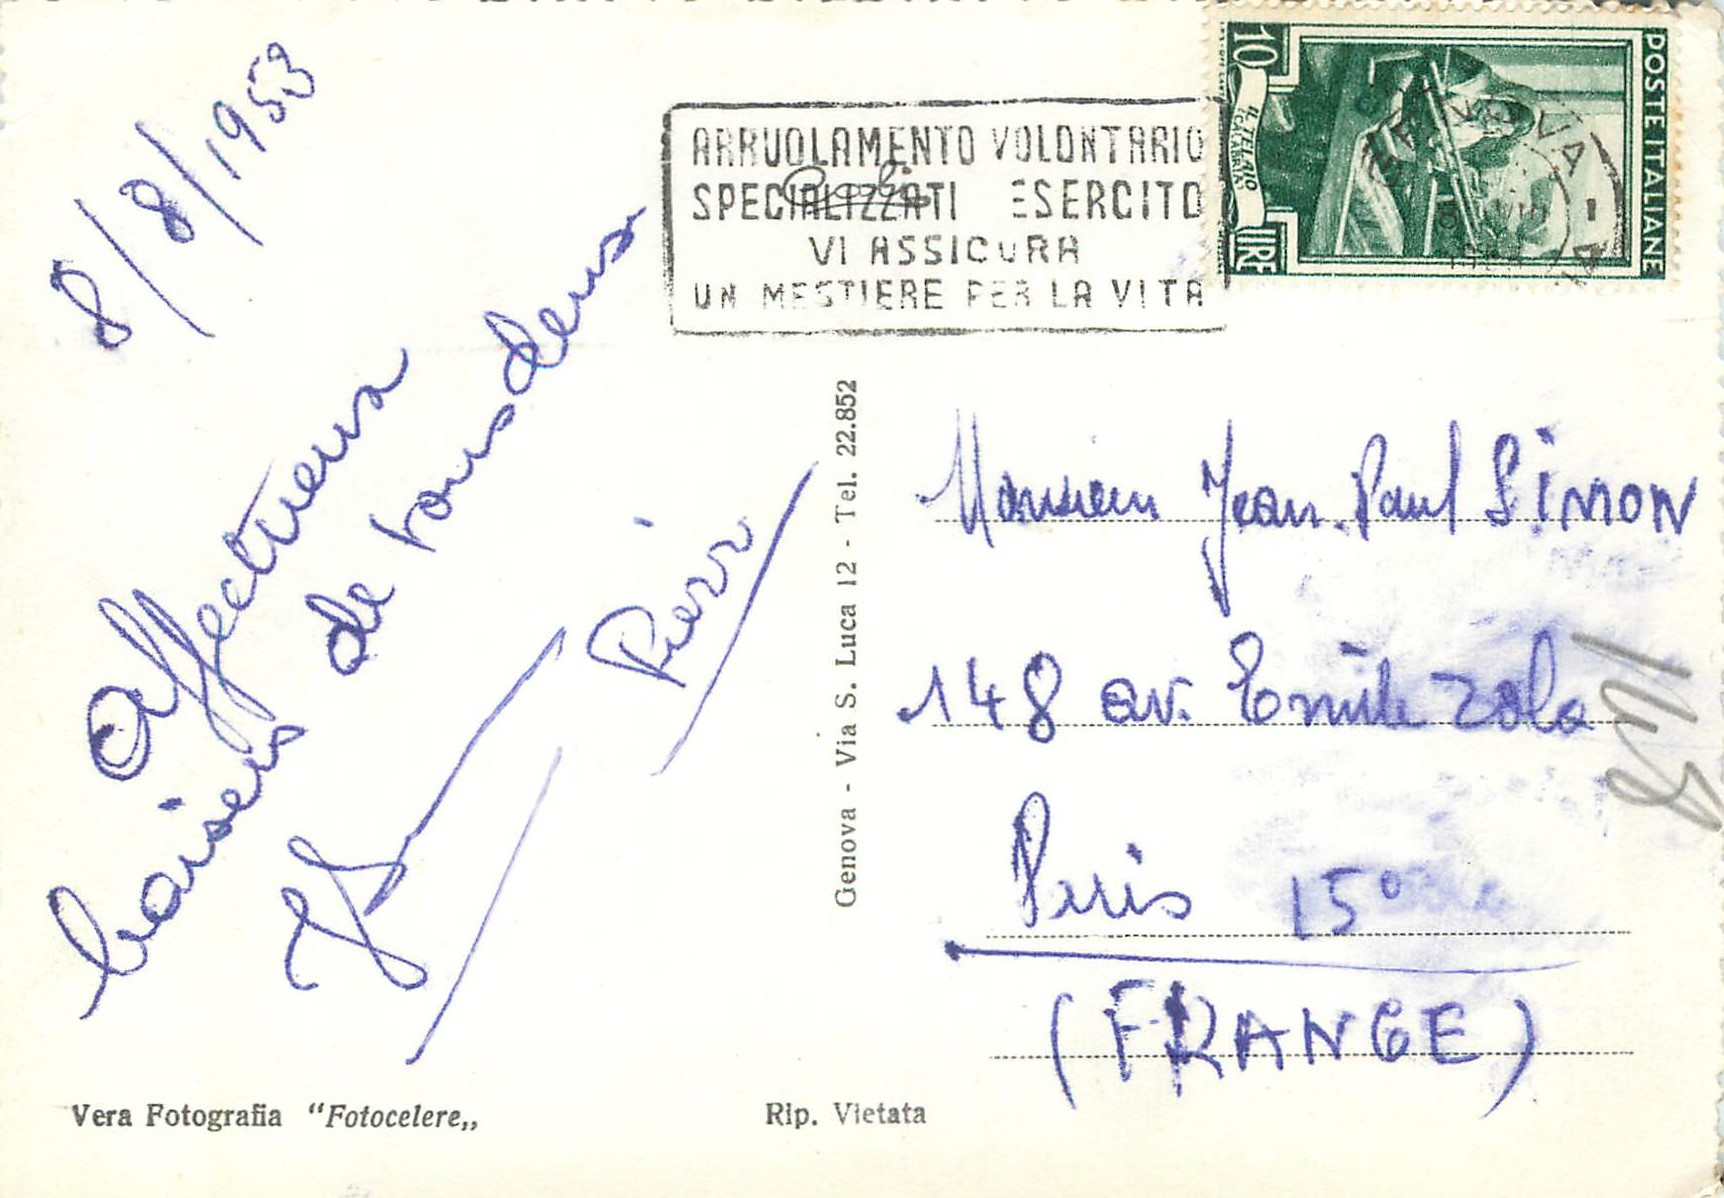 8/8/1953
Affectueux
baisers
de tous deux
Pierr
ARRUOLAMENTO VOLONTARIO
SPECIALIZZATI ESERCITO
VI ASSICURA
UN MESTIERE PER LA VITA
10
LIRE
IL TELAIO
(CALABRIA)
POSTE ITALIANE
GENOVA
Genova - Via S. Luca 12 - Tel. 22.852
Monsieur Jean-Paul SIMON
148 av. Emile Zola
Paris 15°
(FRANCE)
Vera Fotografia "Fotocelere„
Rip. Vietata